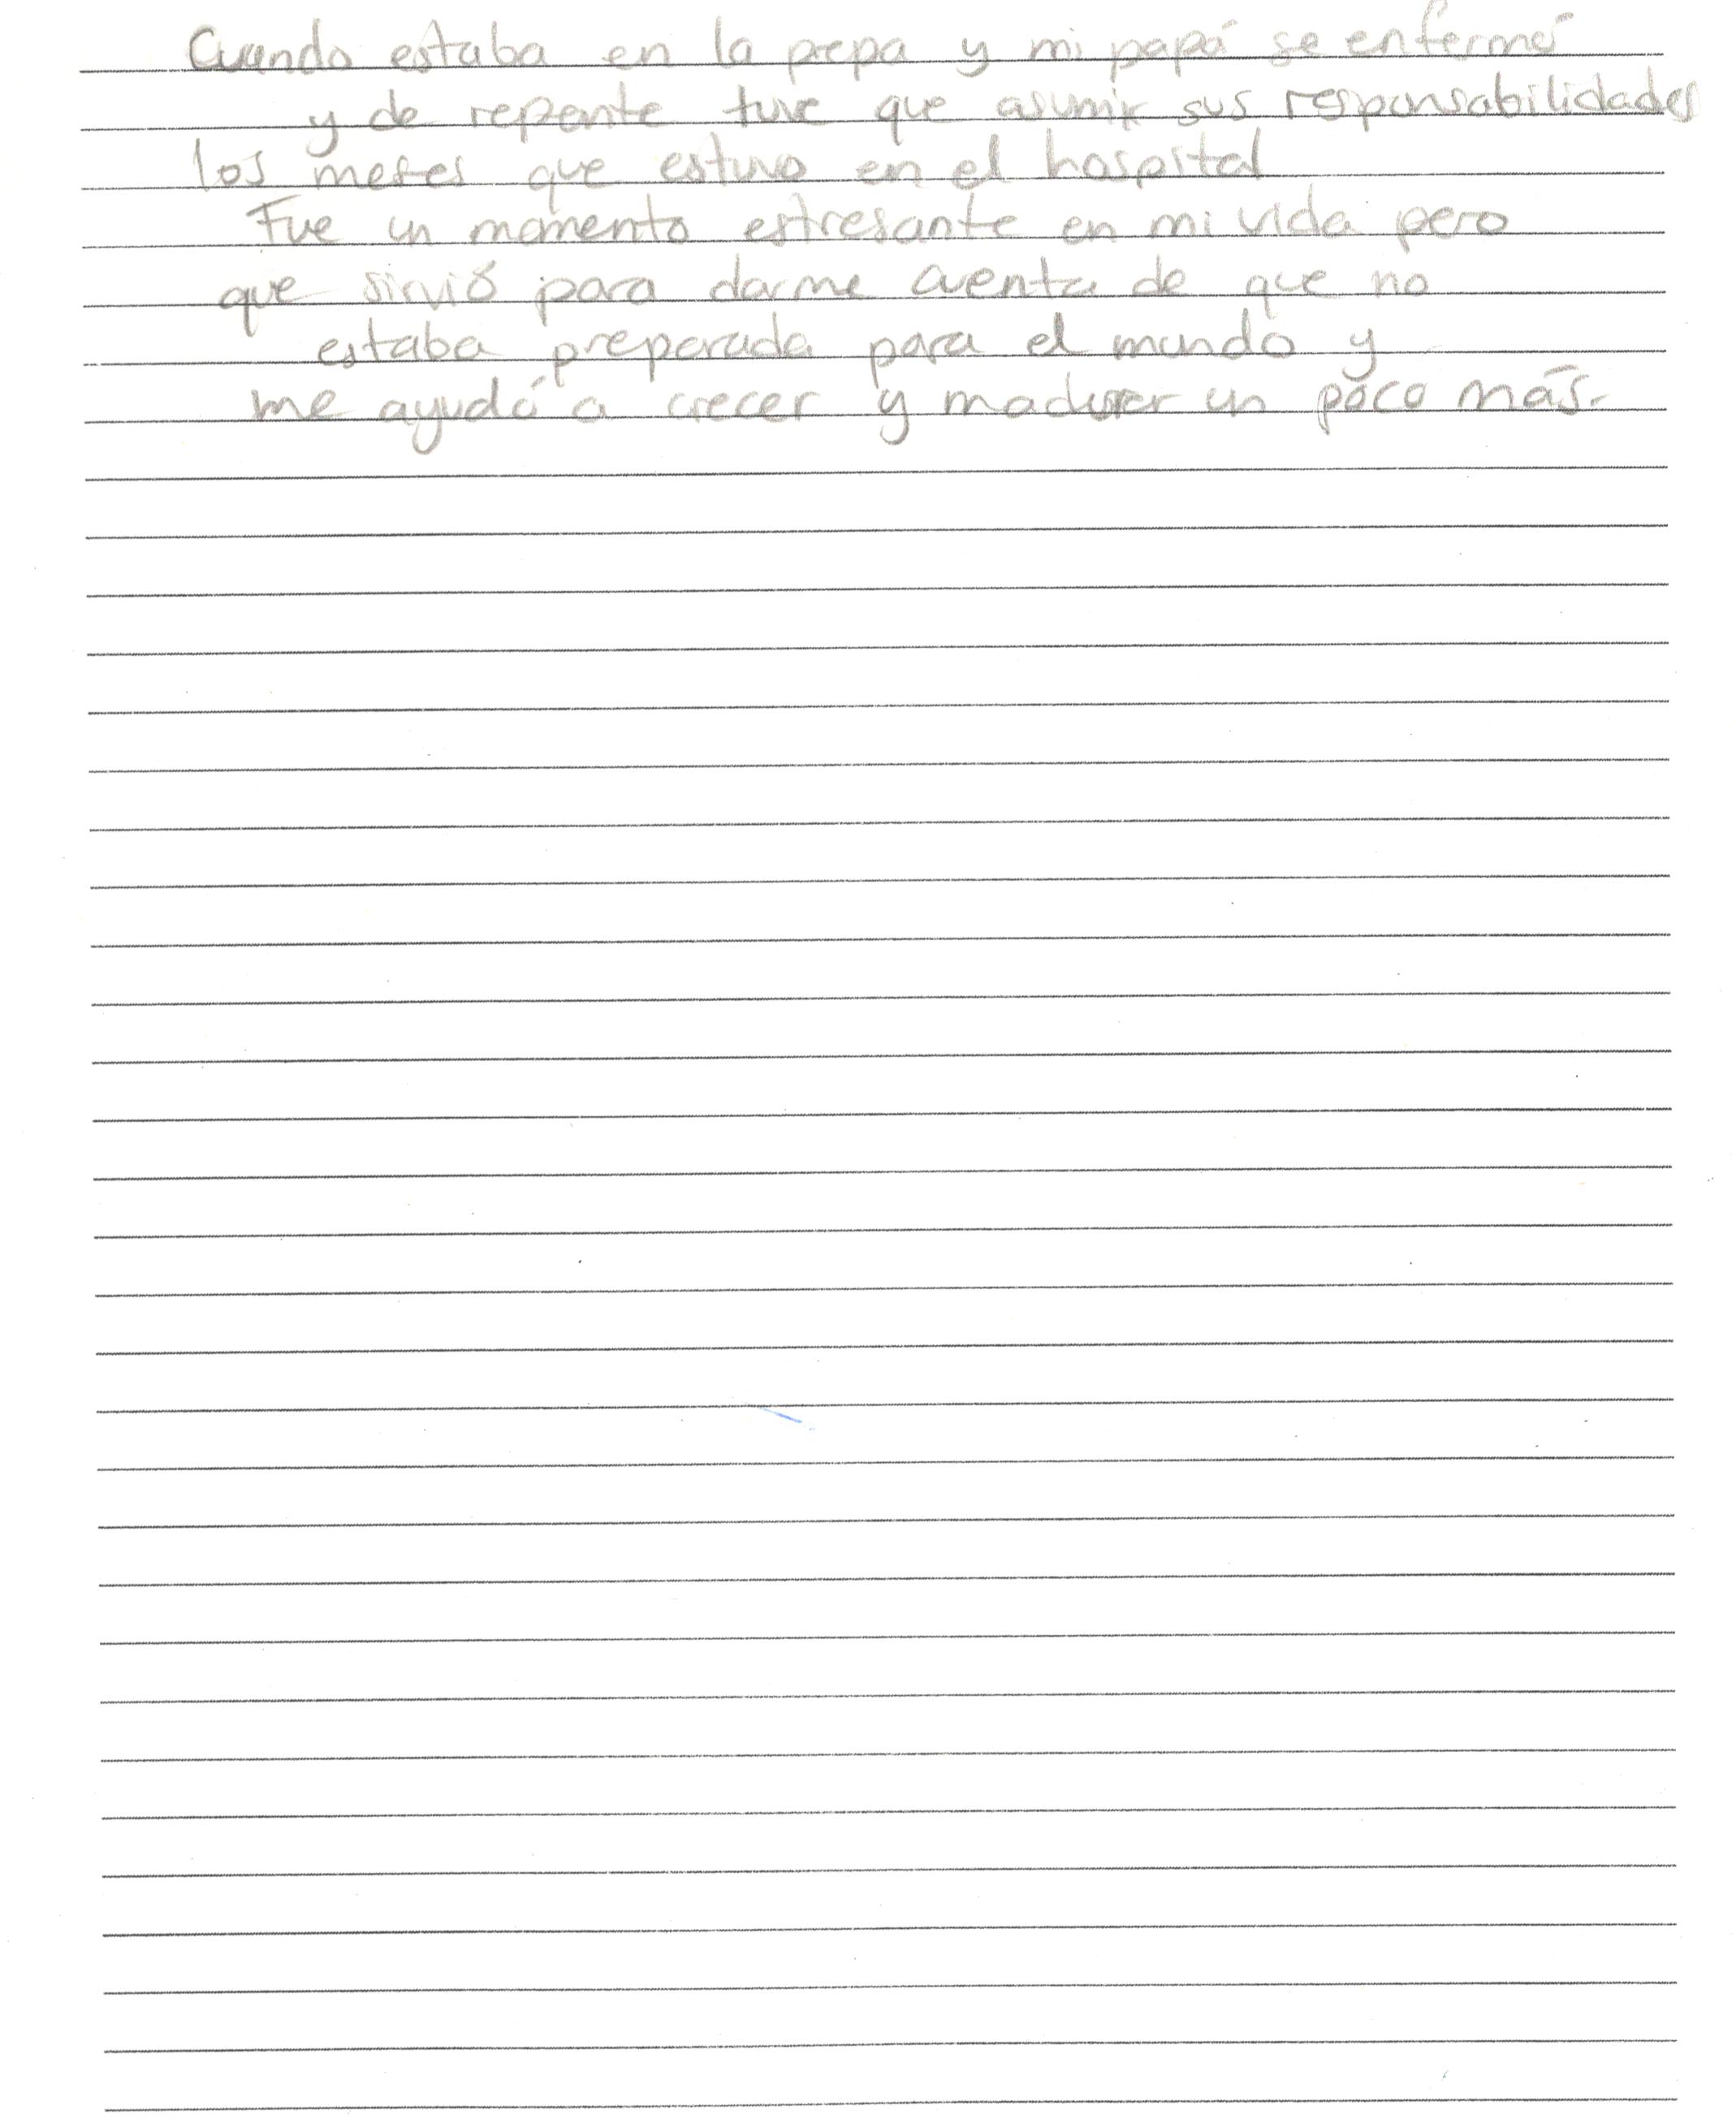 Cuando estaba en la prepa y mi papá se enfermó
y de repente tuve que asumir sus responsabilidades
los meses que estuvo en el hospital
Fue un momento estresante en mi vida pero
que sirvió para darme cuenta de que no
estaba preparada para el mundo y
me ayudó a crecer y madurar un poco más.